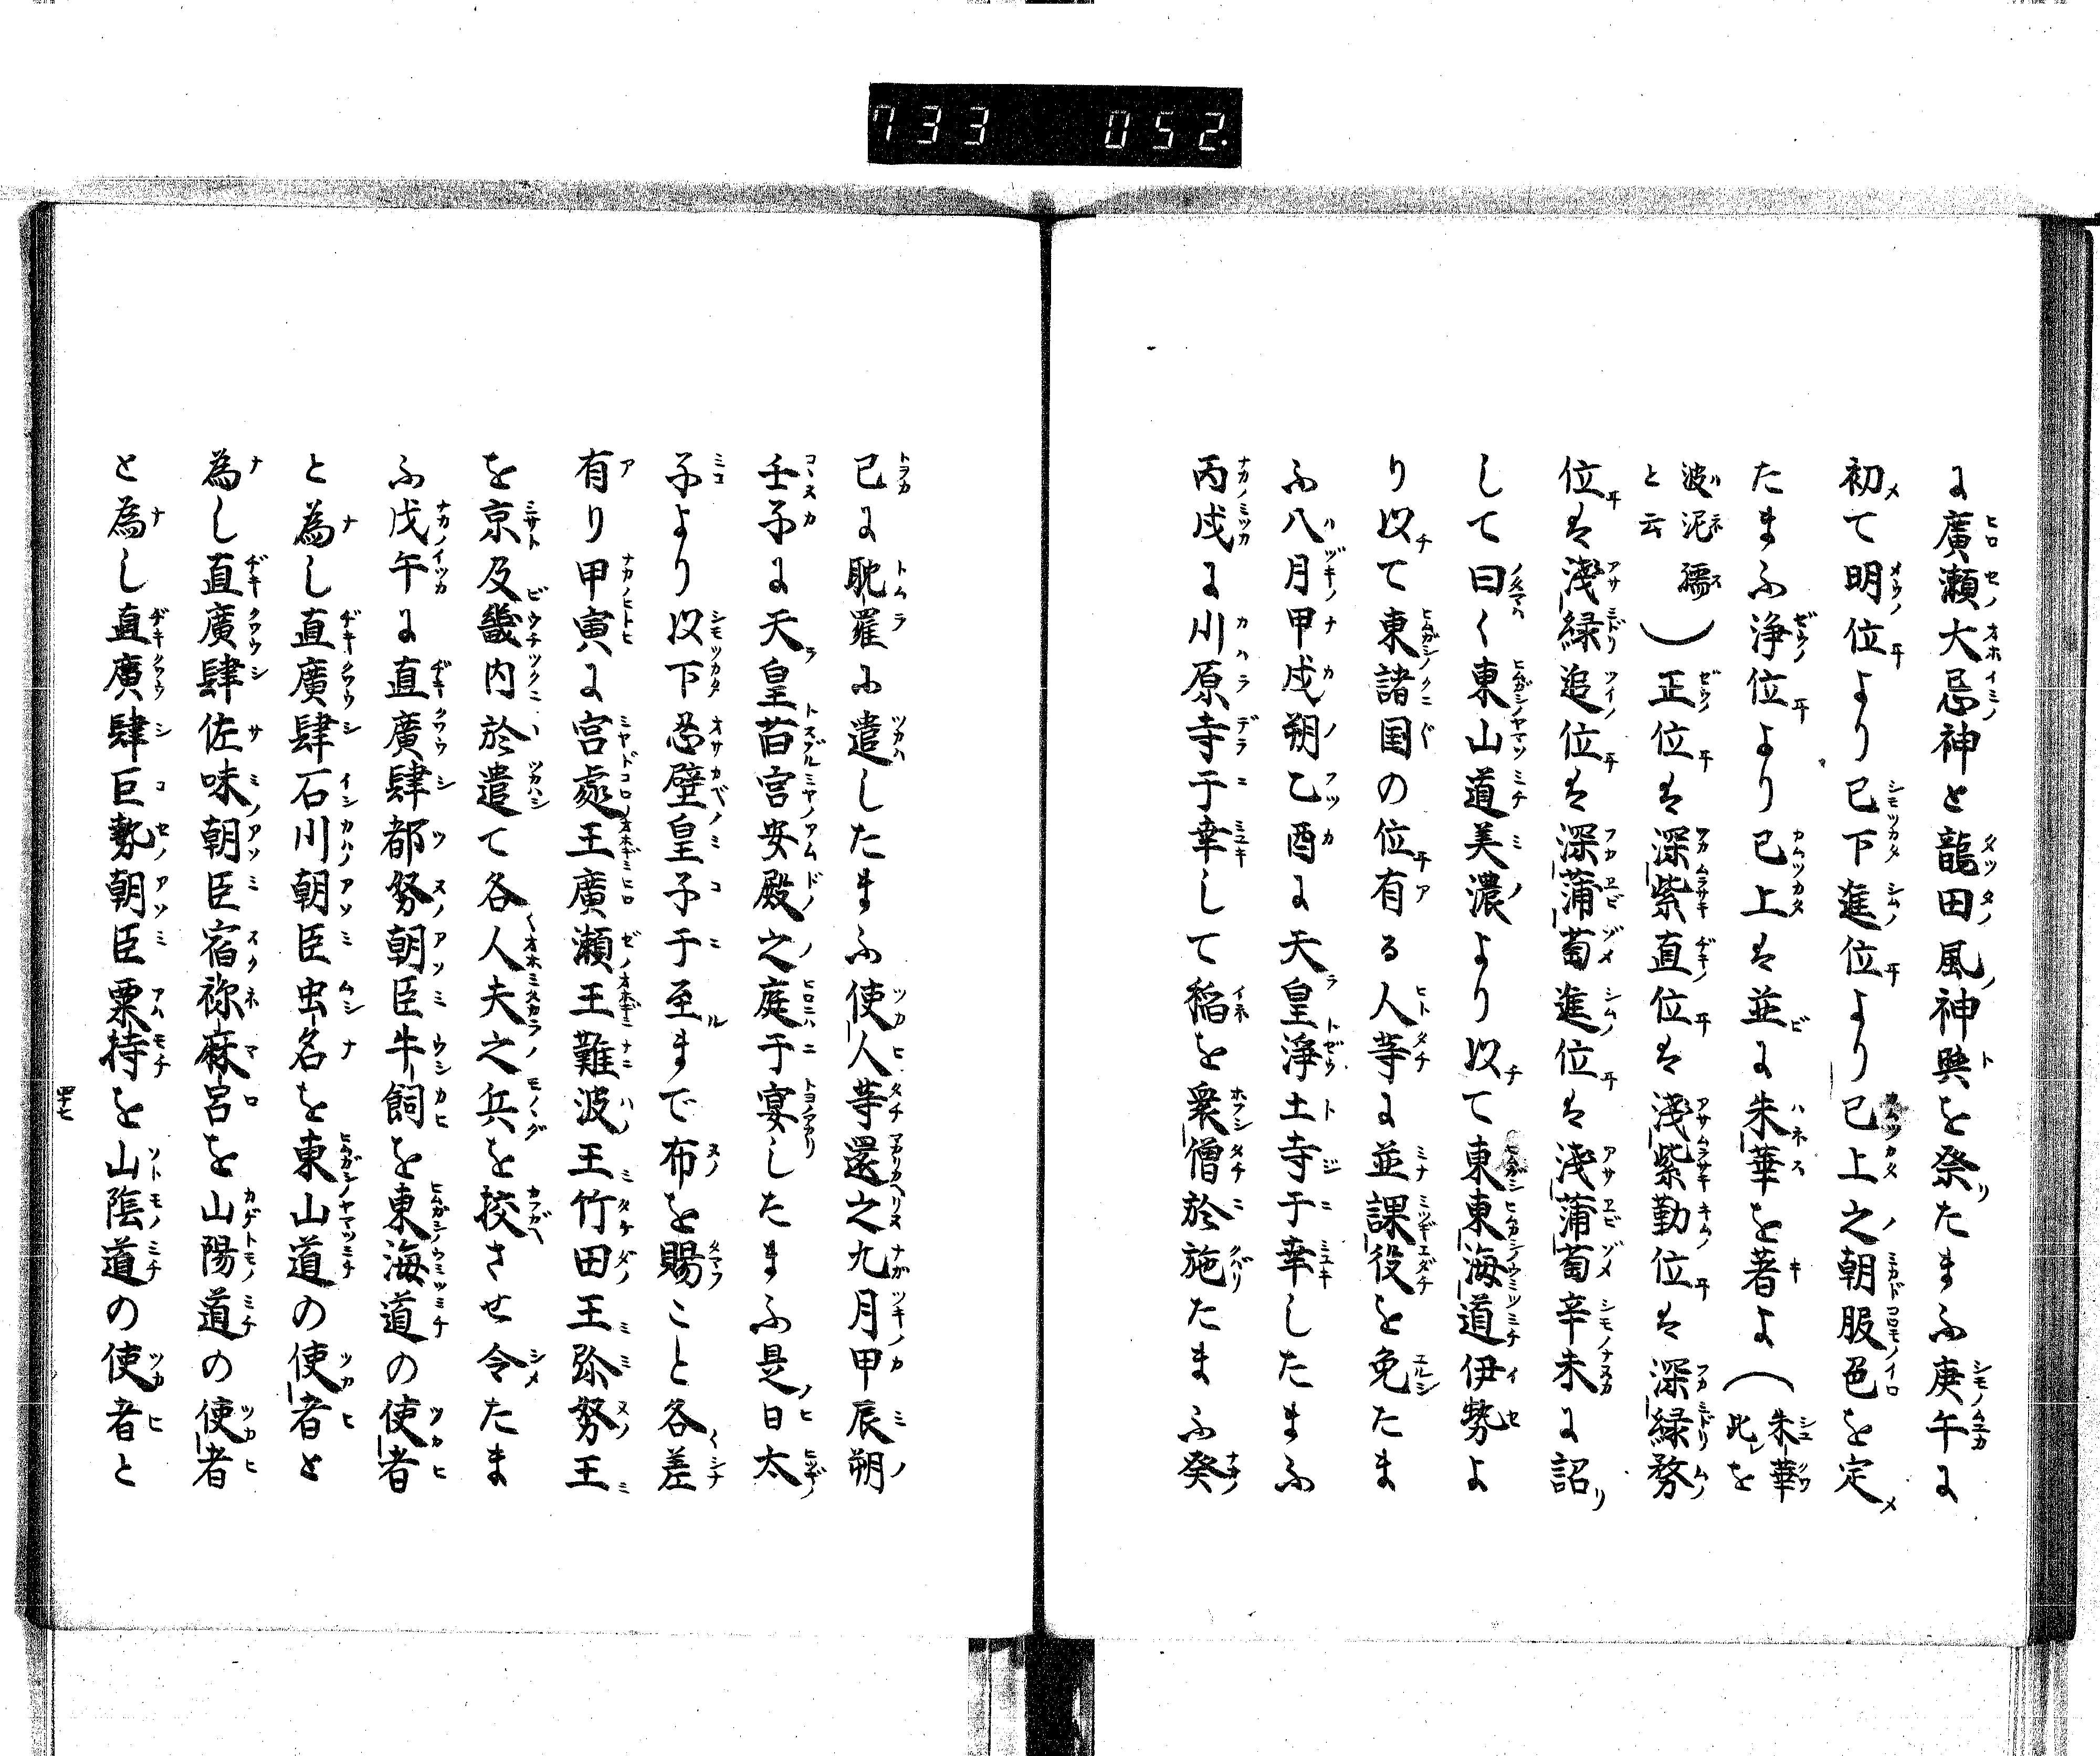 733 052.
に廣瀬大忌神と龍田風神與を祭たまふ庚午に
初て明位より已下進位より已上之朝服色を定
たまふ浄位より已上は並に朱華を著よ（朱華此を
波泥孺と云）正位は深紫直位は淺紫勤位は深緑務
位は淺緑追位は深蒲萄進位は淺蒲萄辛未に詔
して曰く東山道美濃より以て東東海道伊勢よ
り以て東諸国の位有る人等に並課役を免たま
ふ八月甲戌朔乙酉に天皇浄土寺于幸したまふ
丙戌に川原寺于幸して稲を衆僧於施たまふ癸
已に耽羅ふ遣したまふ使人等還之九月甲辰朔
壬子に天皇旧宮安殿之庭于宴したまふ是日太
子より以下忍壁皇子于至まで布を賜こと各差
有り甲寅に宮處王廣瀬王難波王竹田王弥努王
を京及畿内於遣て各人夫之兵を挍させ令たま
ふ戊午に直廣肆都努朝臣牛飼を東海道の使者
と為し直廣肆石川朝臣虫名を東山道の使者と
為し直廣肆佐味朝臣宿祢麻呂を山陽道の使者
と為し直廣肆巨勢朝臣粟持を山陰道の使者と
四十七